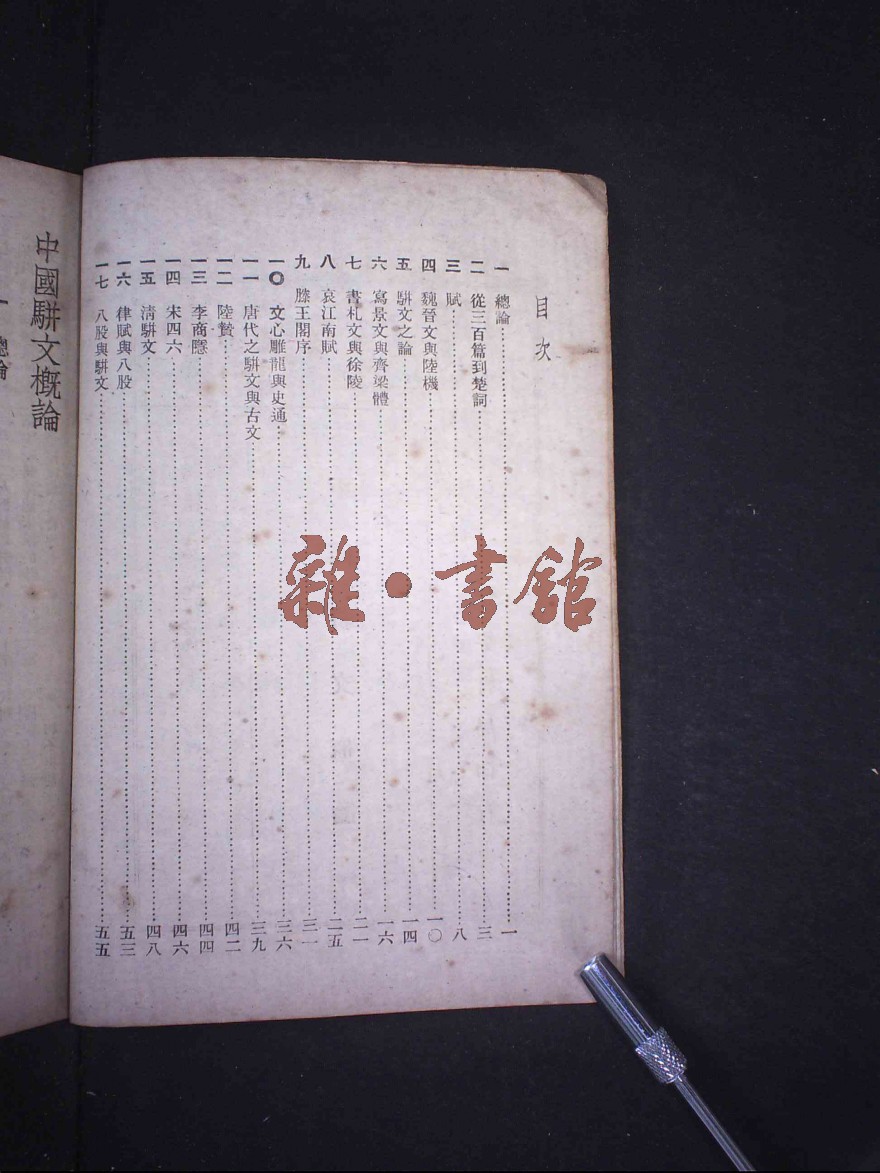 目次
一 總論 一
二 從三百篇到楚詞 三
三 賦 八
四 魏晉文與陸機 一〇
五 駢文之論 一四
六 寫景文與齊梁體 一六
七 書札文與徐陵 二一
八 哀江南賦 二五
九 滕王閣序 三一
一〇 文心雕龍與史通 三六
一一 唐代之駢文與古文 三九
一二 陸贄 四二
一三 李商隱 四四
一四 宋四六 四六
一五 清駢文 四八
一六 律賦與八股 五三
一七 八股與駢文 五五
中國駢文概論
一 總論
雜·書館